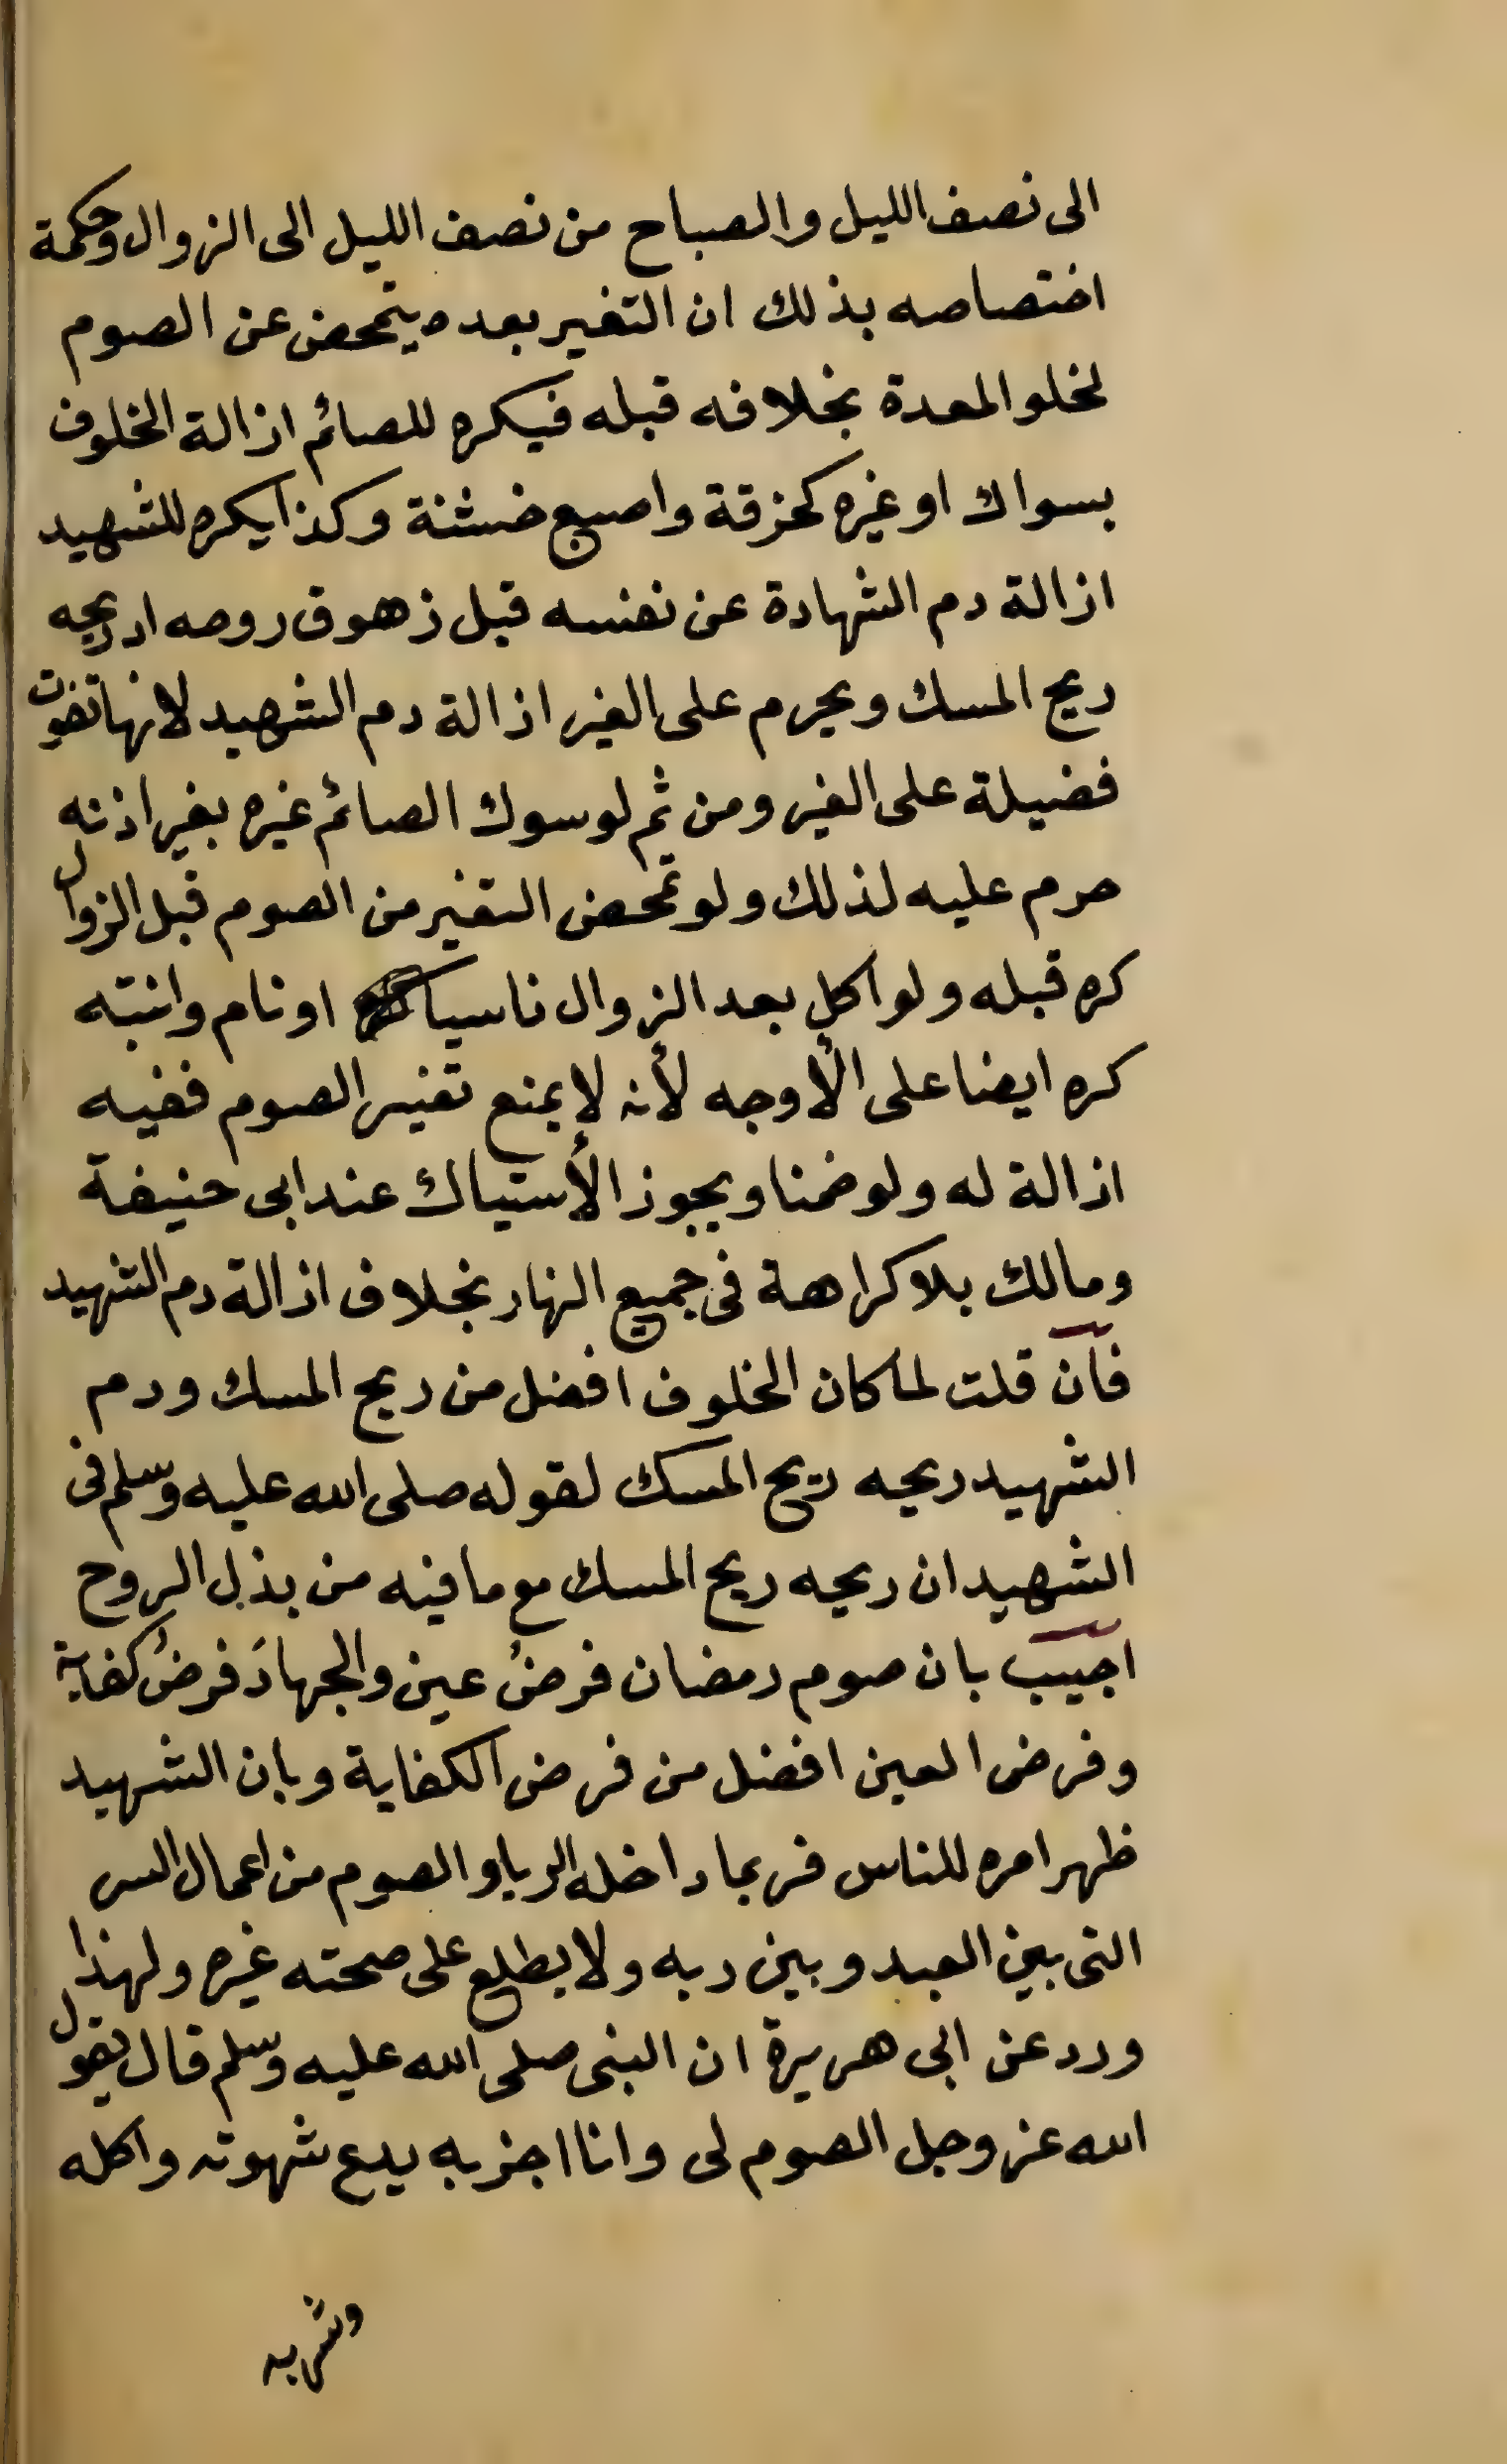 الى نصف الليل والصباح من نصف الليل الى الزوال وحكمة
اختصاصه بذلك ان التغير بعده يتمحض عن الصوم
لخلو المعدة بخلافه قبله فيكره للصائم ازالة الخلوف
بسواك او غيره كخرقة واصبع خشنة وكذا يكره للشهيد
ازالة دم الشهادة عن نفسه قبل زهوق روحه اذ ريحه
ريح المسك ويحرم على الغير ازالة دم الشهيد لانها تفوت
فضيلة على الغير ومن ثم لو سوك الصائم غيره بغير اذنه
حرم عليه لذلك ولو تمحض التغير من الصوم قبل الزوال
كره قبله ولو اكل بعد الزوال ناسيا او نام وانتبه
كره ايضا على الأوجه لأنه لا يمنع تغير الصوم ففيه
ازالة له ولو ضمنا ويجوز الأستياك عند ابى حنيفة
ومالك بلا كراهة فى جميع النهار بخلاف ازالة دم الشهيد
فان قلت لما كان الخلوف افضل من ريح المسك ودم
الشهيد ريحه ريح المسك لقوله صلى الله عليه وسلم فى
الشهيد ان ريحه ريح المسك مع ما فيه من بذل الروح
اجيب بان صوم رمضان فرضُ عين والجهادَ فرضُ كفاية
وفرض العين افضل من فرض الكفاية وبان الشهيد
ظهر امره للناس فربما داخله الريا والصوم من اعمال السر
التى بين العبد وبين ربه ولا يطلع على صحته غيره ولهذا
ورد عن ابى هريرة ان النبى صلى الله عليه وسلم قال يقول
الله عز وجل الصوم لى وانا اجز به يدع شهوته واكله
وشربه